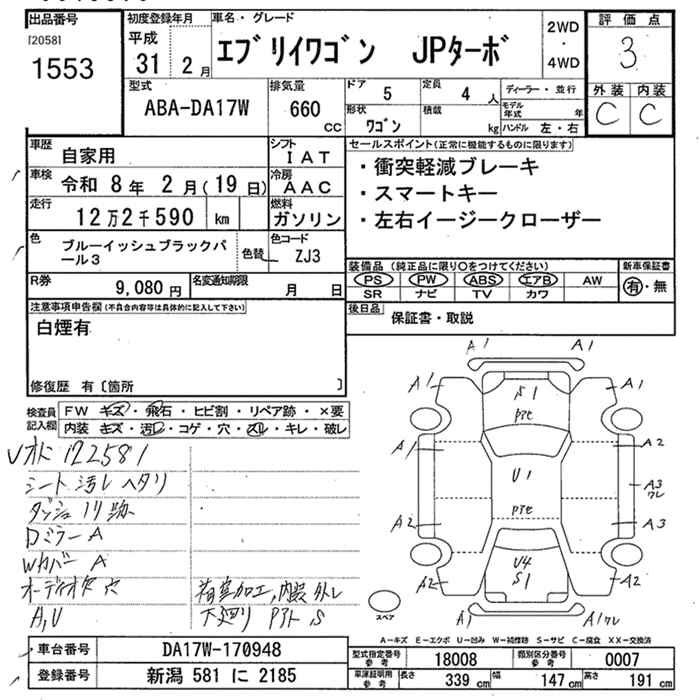 出品番号
[2058]
1553
初度登録年月
平成
31 2月
車名・グレード
エブリイワゴン JPターボ
2WD
・
4WD
評価点
3
外装 内装
C C
型式
ABA-DA17W
排気量
660 CC
ドア 5
定員 4人
形状 ワゴン
積載 kg
ディーラー・並行
モデル年式 年
ハンドル 左・右
車歴 自家用
シフト IAT
車検 令和 8年 2月(19日)
冷房 AAC
走行 12万2千590 km
燃料 ガソリン
色 ブルーイッシュブラックパール3
色替
色コード ZJ3
R券 9,080円
名変通知期限 月 日
セールスポイント(正常に機能するものに限ります)
・衝突軽減ブレーキ
・スマートキー
・左右イージークローザー
装備品(純正品に限り○をつけてください)
PS PW ABS エアB AW
SR ナビ TV カワ
新車保証書
有・無
後日品 保証書・取説
注意事項申告欄(不具合内容等は具体的に記入して下さい)
白煙有
修復歴 有〔箇所 〕
検査員記入欄
FW キズ・飛石・ヒビ割・リペア跡・×要
内装 キズ・汚レ・コゲ・穴・スレ・キレ・破レ
122581
シート 汚レ ヘタリ
ダッシュ ノリ跡
Dミラー A
Wカバー A
オーディオ 穴
A,U
荷室加工,内張外し
下廻り S
A1 A1
A1 A1
S1
pte
A1 A2
U1
A3
ワレ
A2 A3
pte
U4
S1
A2 A2
A1 A1ワレ
スペア
A-キズ E-エクボ U-凹み W-補修跡 S-サビ C-腐食 XX-交換済
車台番号 DA17W-170948
登録番号 新潟 581 に 2185
型式指定番号 参考 18008
類別区分番号 参考 0007
車庫証明用 参考 長さ 339 cm 幅 147 cm 高さ 191 cm